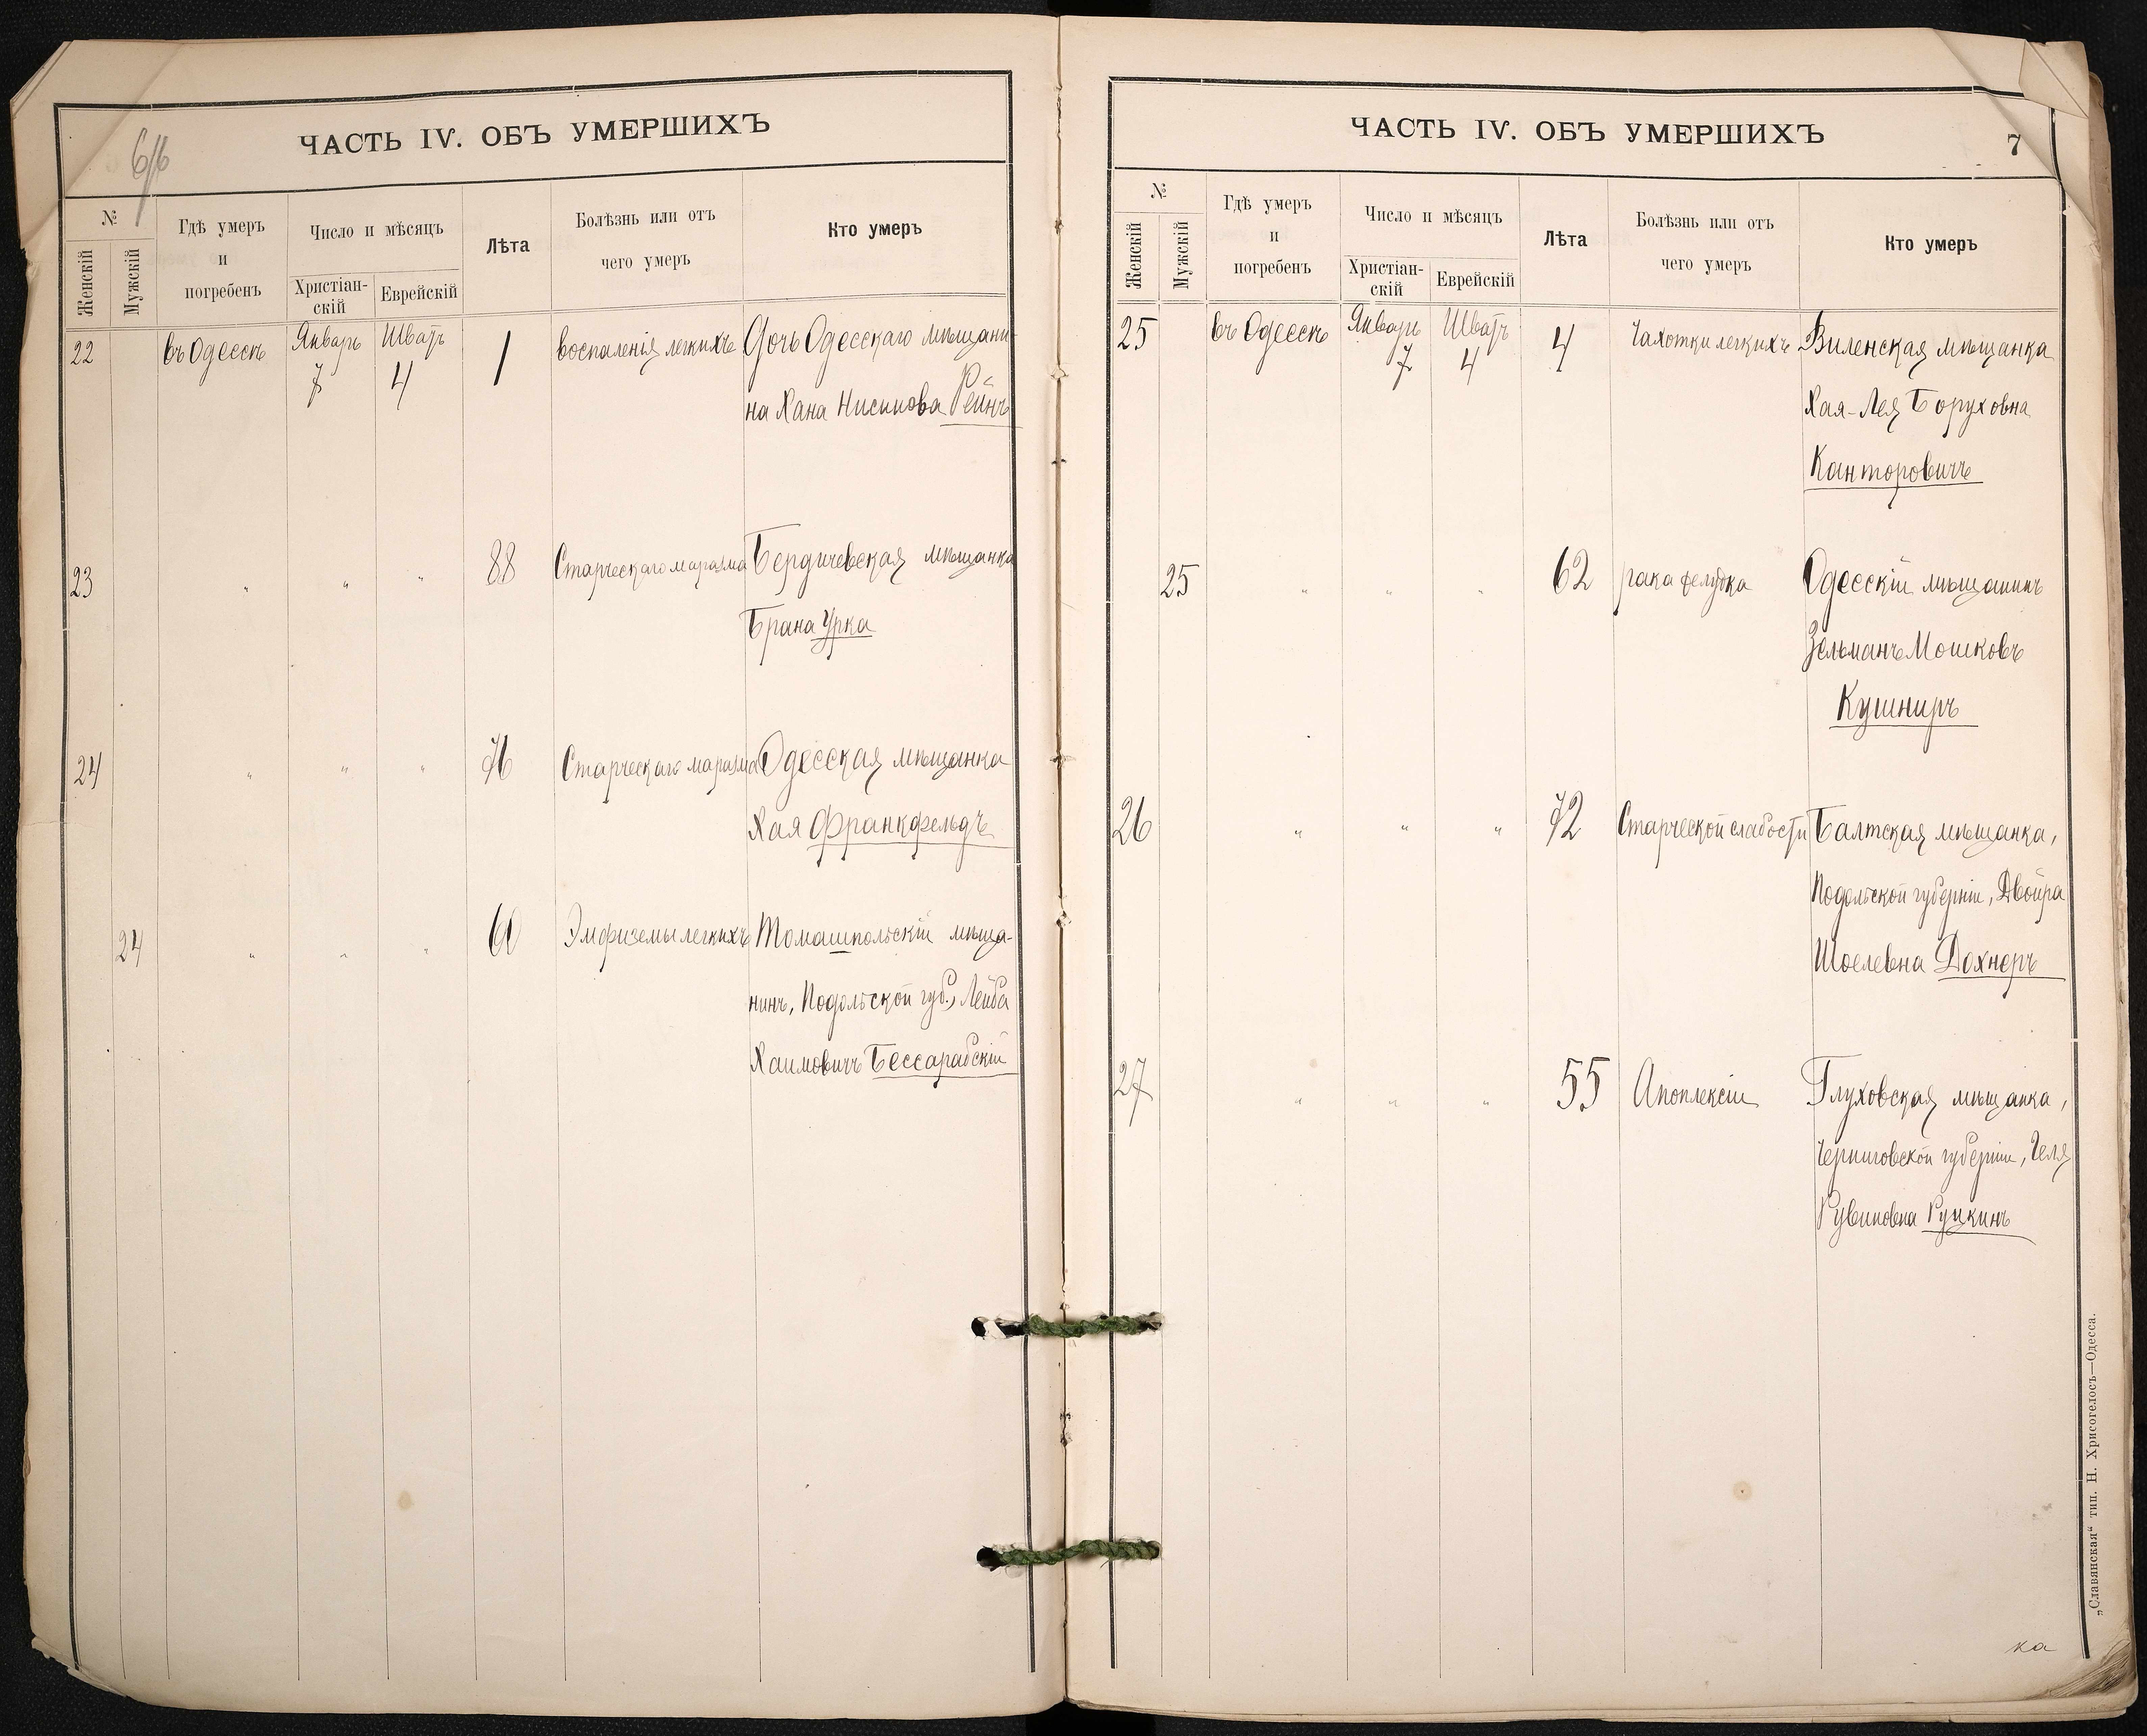 6/б
ЧАСТЬ IV. ОБЪ УМЕРШИХЪ
№
Женскій
Мужскій
Гдѣ умеръ
и
погребенъ
Число и мѣсяцъ
Христіан-
скій
Еврейскій
Лѣта
Болѣзнь или отъ
чего умеръ
Кто умеръ
22 въ Одессѣ Январь Шватъ 1 воспаленія легкихъ Дочь Одесскаго мѣщани-
7 4 на Хана Нисинова Рейнъ
23 " " " 88 Старческаго маразма Бердичевская мѣщанка
Брана Урка
24 " " " 76 Старческаго маразма Одесская мѣщанка
Хая Франкфельдъ
24 " " " 60 Эмфиземы легкихъ Томашпольскій мѣща-
нинъ, Подольской губ., Лейба
Хаимовичъ Бессарабскій
ЧАСТЬ IV. ОБЪ УМЕРШИХЪ
7
№
Женскій
Мужскій
Гдѣ умеръ
и
погребенъ
Число и мѣсяцъ
Христіан-
скій
Еврейскій
Лѣта
Болѣзнь или отъ
чего умеръ
Кто умеръ
25 въ Одессѣ Январь Шватъ 4 Чахотки легкихъ Виленская мѣщанка
7 4 Хая-Лея Боруховна
Канторовичъ
25 " " " 62 рака желудка Одесскій мѣщанинъ
Зельманъ Мошковъ
Кушниръ
26 " " " 72 Старческой слабости Балтская мѣщанка,
Подольской губерніи, Двойра
Шоелевна Дохнеръ
27 " " " 55 Апоплексіи Глуховская мѣщанка,
Черниговской губерніи, Геля
Рувиновна Руцкинъ
„Славянская“ тип. Н. Хрисогелосъ—Одесса.
ка